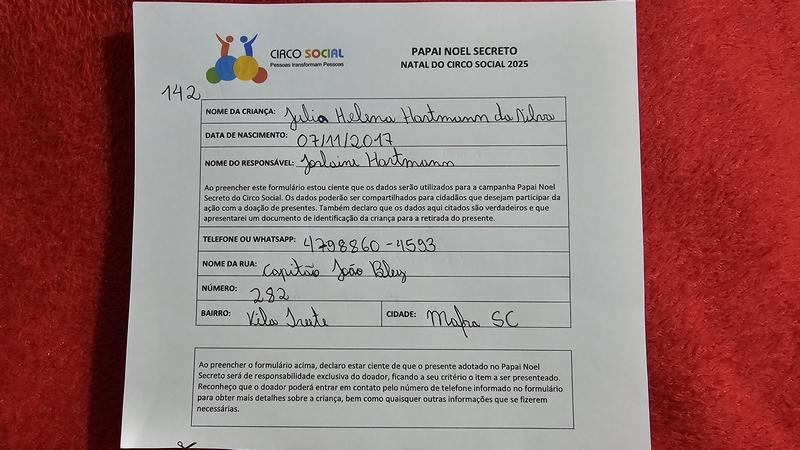 CIRCO SOCIAL
Pessoas transformam Pessoas
PAPAI NOEL SECRETO
NATAL DO CIRCO SOCIAL 2025
142
NOME DA CRIANÇA: Julia Helena Hartmann da Silva
DATA DE NASCIMENTO: 07/11/2017
NOME DO RESPONSÁVEL: Joslaine Hartmann
Ao preencher este formulário estou ciente que os dados serão utilizados para a campanha Papai Noel
Secreto do Circo Social. Os dados poderão ser compartilhados para cidadãos que desejam participar da
ação com a doação de presentes. Também declaro que os dados aqui citados são verdadeiros e que
apresentarei um documento de identificação da criança para a retirada do presente.
TELEFONE OU WHATSAPP: 4798860-4593
NOME DA RUA: Capitão João Bley
NÚMERO: 282
BAIRRO: Vila Ivete CIDADE: Mafra SC
Ao preencher o formulário acima, declaro estar ciente de que o presente adotado no Papai Noel
Secreto será de responsabilidade exclusiva do doador, ficando a seu critério o item a ser presenteado.
Reconheço que o doador poderá entrar em contato pelo número de telefone informado no formulário
para obter mais detalhes sobre a criança, bem como quaisquer outras informações que se fizerem
necessárias.